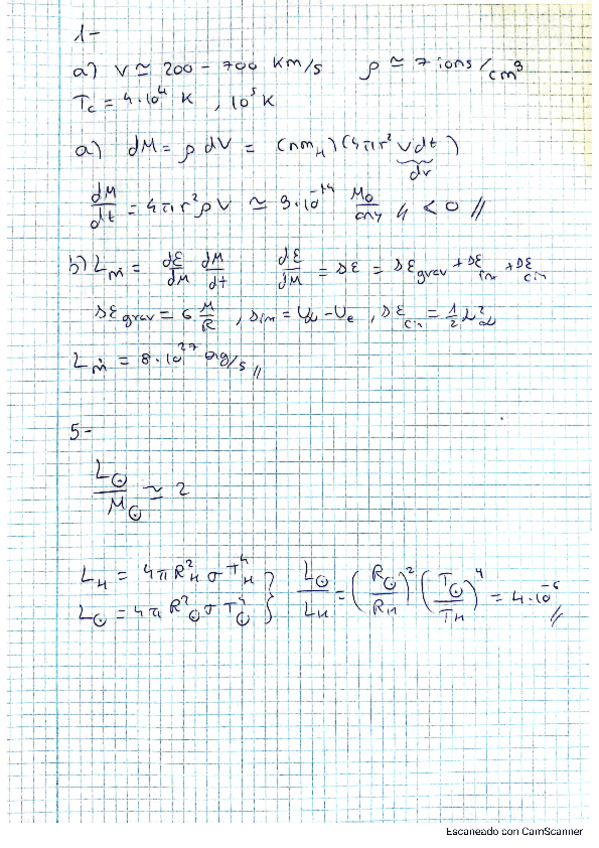 1-
a) v ≃ 200 - 700 km/s ρ ≃ 7 ions/cm³
Tc = 4·10⁴ K , 10⁵ K
a) dM = ρ dV = (nm_H)(4πr² vdt)
dr
dM/dt = 4πr²ρv ≃ 9·10⁻¹⁴ M⊙/any < 0 //
b) L_ṁ = dE/dM dM/dt dE/dM = ΔE = ΔE_grav + ΔE_in + ΔE_cin
ΔE_grav = G M/R , Δ_in = U_∞ - U_e , ΔE_cin = 1/2 v²_∞
L_ṁ = 8·10²⁷ erg/s //
5-
L⊙/M⊙ ≃ 2
L_H = 4πR²_H σT⁴_H
L⊙ = 4πR²⊙ σT⁴⊙ } L⊙/L_H = (R⊙/R_H)² (T⊙/T_H)⁴ = 4·10⁻⁶ //
Escaneado con CamScanner